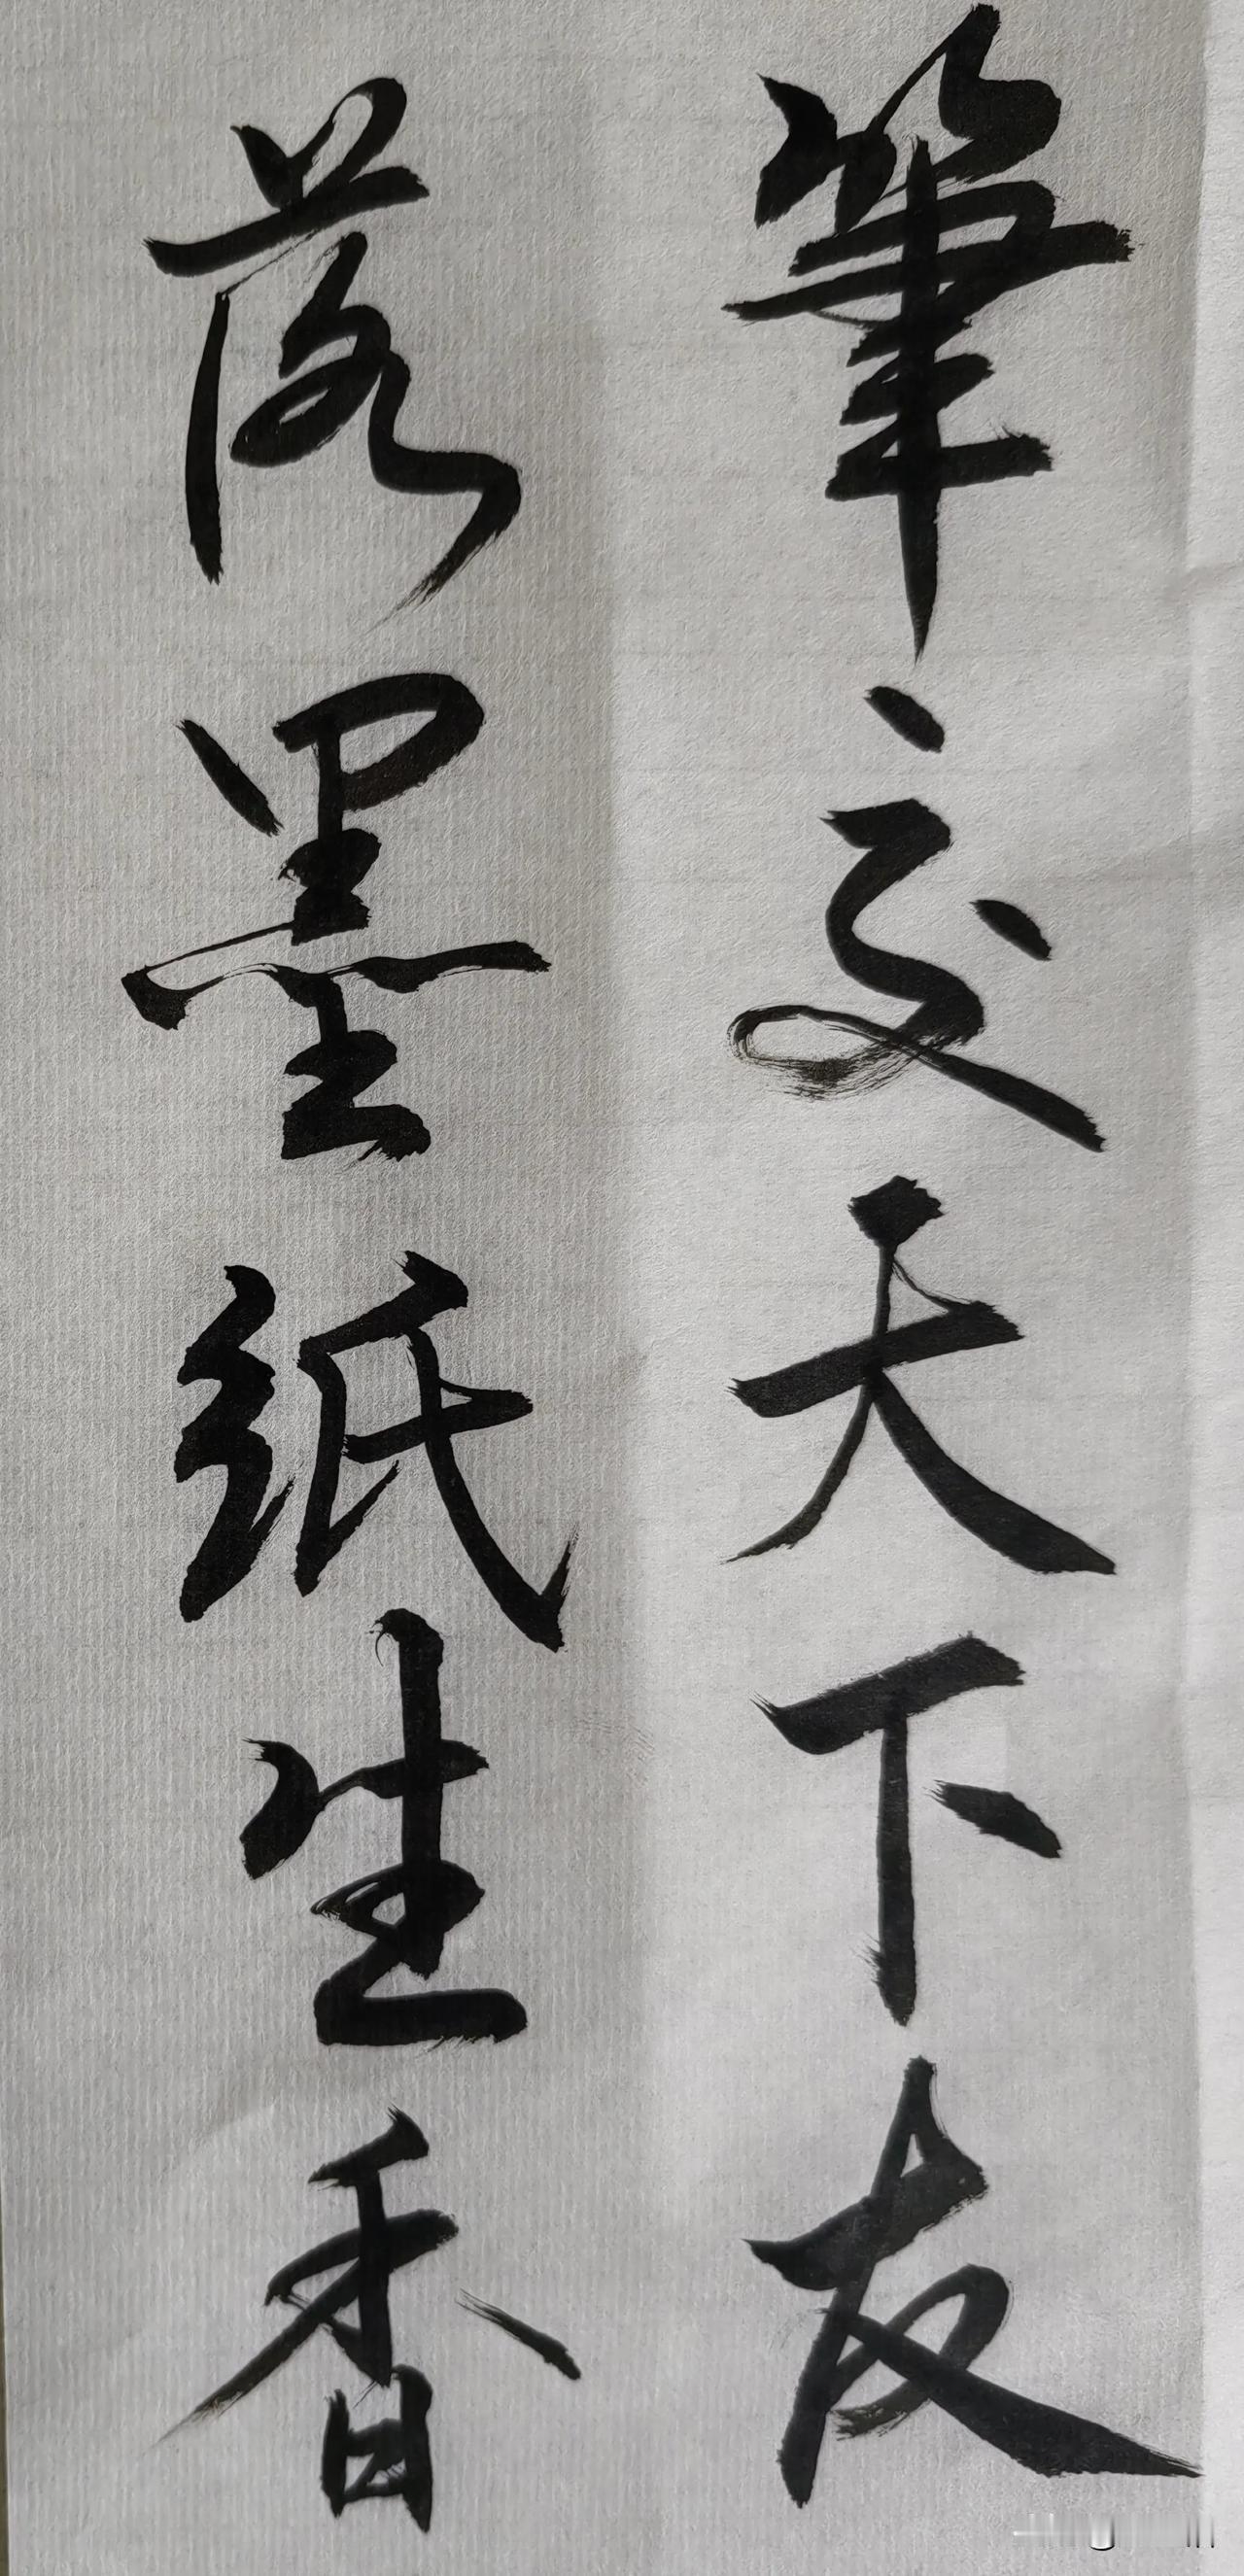 筆交天下友
落墨纸生香